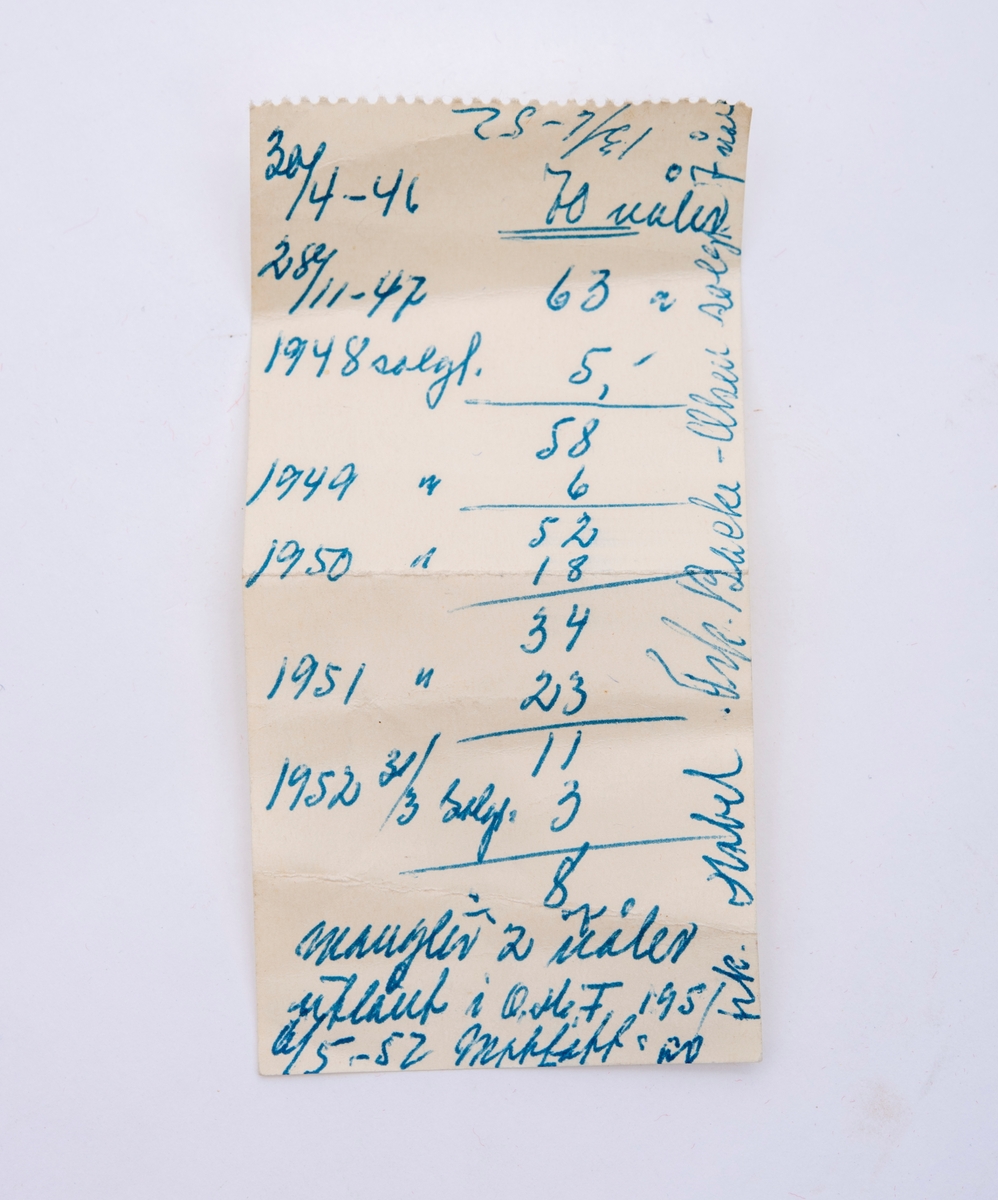 30/4-46 70 nåler
28/11-47 63 "
1948 solgt. 5,-
58
1949 " 6
52
1950 " 18
34
1951 " 23
11
1952 31/3 Solgt. 3
8
mangler 2 nåler
utlånt i O.M.F. 1951
6/5-52 Mottatt
frk. Frk. Backe-Olsen solgt 7 nåler
13/2-52